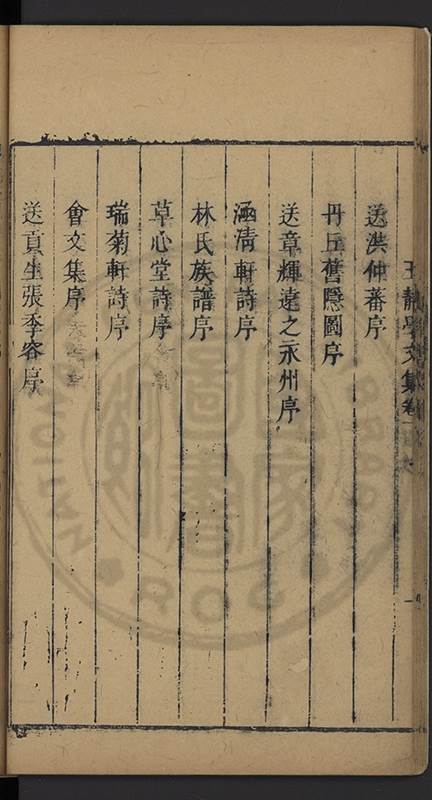 王靜學文集卷
送洪仲蕃序
丹丘舊隱圖序
送章輝遠之永州序
涵清軒詩序
林氏族譜序
草心堂詩序
瑞菊軒詩序
會文集序
送貢生張季容序
國家圖書
NATIONAL
ROC